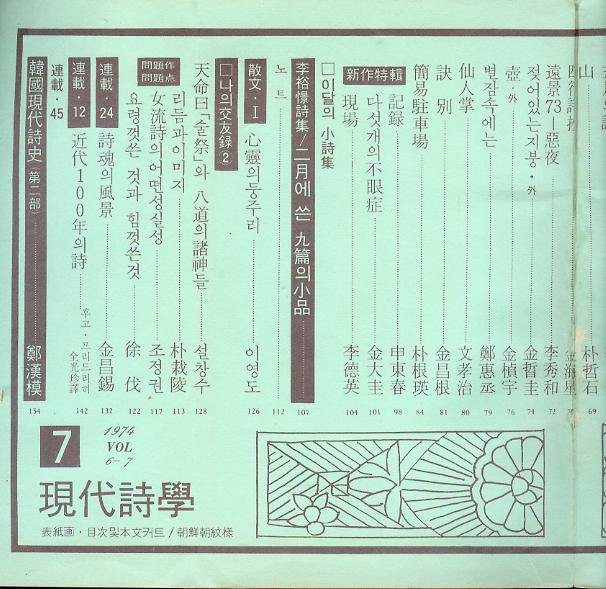 山 朴哲石 69
四行詩抄 金海星
遠景73—惡夜 李秀和 72
젖어있는지붕・外 金哲圭 74
壺・外 金楨宇 76
별잠속에는 鄭惠丞 79
仙人掌 文孝治 80
訣別 金昌根 81
簡易駐車場 朴根瑛 84
新作特輯
記録 申東春 98
다섯개의不眠症 金大圭 101
現場 李德英 104
□이달의 小詩集
李裕憬詩集/二月에 쓴 九篇의小品 107
노트 112
散文・I 心靈의둥주리 이영도 126
□나의交友録②
天命曰「굿祭」와 八道의諸神들 설창수 128
問題作
問題点
리듬과이미지 朴栽陵 113
女流詩의어떤성실성 조정권 117
요령껏쓴 것과 힘껏쓴것 徐伐 122
連載・24 詩魂의風景 金昌錫 132
連載・12 近代100年의詩 후고・프리드리히 金光珍譯 142
連載・45
韓國現代詩史(第二部) 鄭漢模 154
7
1974
VOL
6-7
現代詩學
表紙画・目次및本文커트/朝鮮朝紋樣